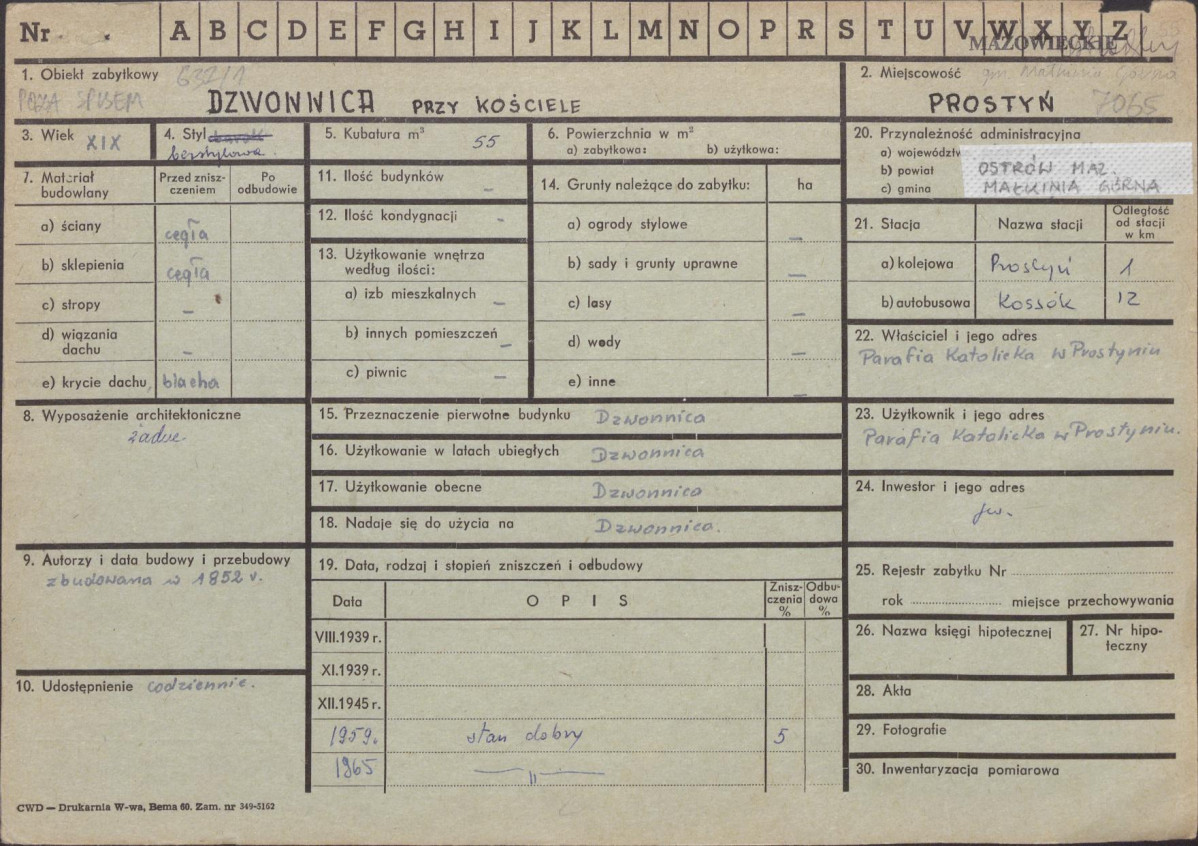 Nr A B C D E F G H I J K L M N O P R S T U V W X Y Z
MAZOWIECKIE
1. Obiekt zabytkowy 632/1
POZA SPISEM
DZWONNICA PRZY KOŚCIELE
2. Miejscowość gm. Małkinia Górna
PROSTYŃ 7065
3. Wiek XIX
4. Styl barok
bezstylowa
5. Kubatura m³ 55
6. Powierzchnia w m²
a) zabytkowa: b) użytkowa:
7. Materiał budowlany
Przed zniszczeniem
Po odbudowie
a) ściany cegła
b) sklepienia cegła
c) stropy –
d) wiązania dachu –
e) krycie dachu blacha
8. Wyposażenie architektoniczne
żadne
9. Autorzy i data budowy i przebudowy
zbudowana w 1852 r.
10. Udostępnienie codziennie.
11. Ilość budynków –
12. Ilość kondygnacji -
13. Użytkowanie wnętrza
według ilości:
a) izb mieszkalnych –
b) innych pomieszczeń –
c) piwnic –
14. Grunty należące do zabytku: ha
a) ogrody stylowe –
b) sady i grunty uprawne –
c) lasy –
d) wody –
e) inne –
15. Przeznaczenie pierwotne budynku Dzwonnica
16. Użytkowanie w latach ubiegłych Dzwonnica
17. Użytkowanie obecne Dzwonnica
18. Nadaje się do użycia na Dzwonnica.
19. Data, rodzaj i stopień zniszczeń i odbudowy
Data OPIS Zniszczenia % Odbudowa %
VIII.1939 r.
XI.1939 r.
XII.1945 r.
1959. stan dobry 5
1965 —"—
20. Przynależność administracyjna
a) województw
b) powiat OSTRÓW MAZ.
c) gmina MAŁKINIA GÓRNA
21. Stacja Nazwa stacji Odległość od stacji w km
a) kolejowa Prostyń 1
b) autobusowa Kossók 12
22. Właściciel i jego adres
Parafia Katolicka w Prostyniu
23. Użytkownik i jego adres
Parafia Katolicka w Prostyniu.
24. Inwestor i jego adres
jw.
25. Rejestr zabytku Nr
rok miejsce przechowywania
26. Nazwa księgi hipotecznej
27. Nr hipoteczny
28. Akta
29. Fotografie
30. Inwentaryzacja pomiarowa
CWD — Drukarnia W-wa, Bema 60. Zam. nr 349-5162